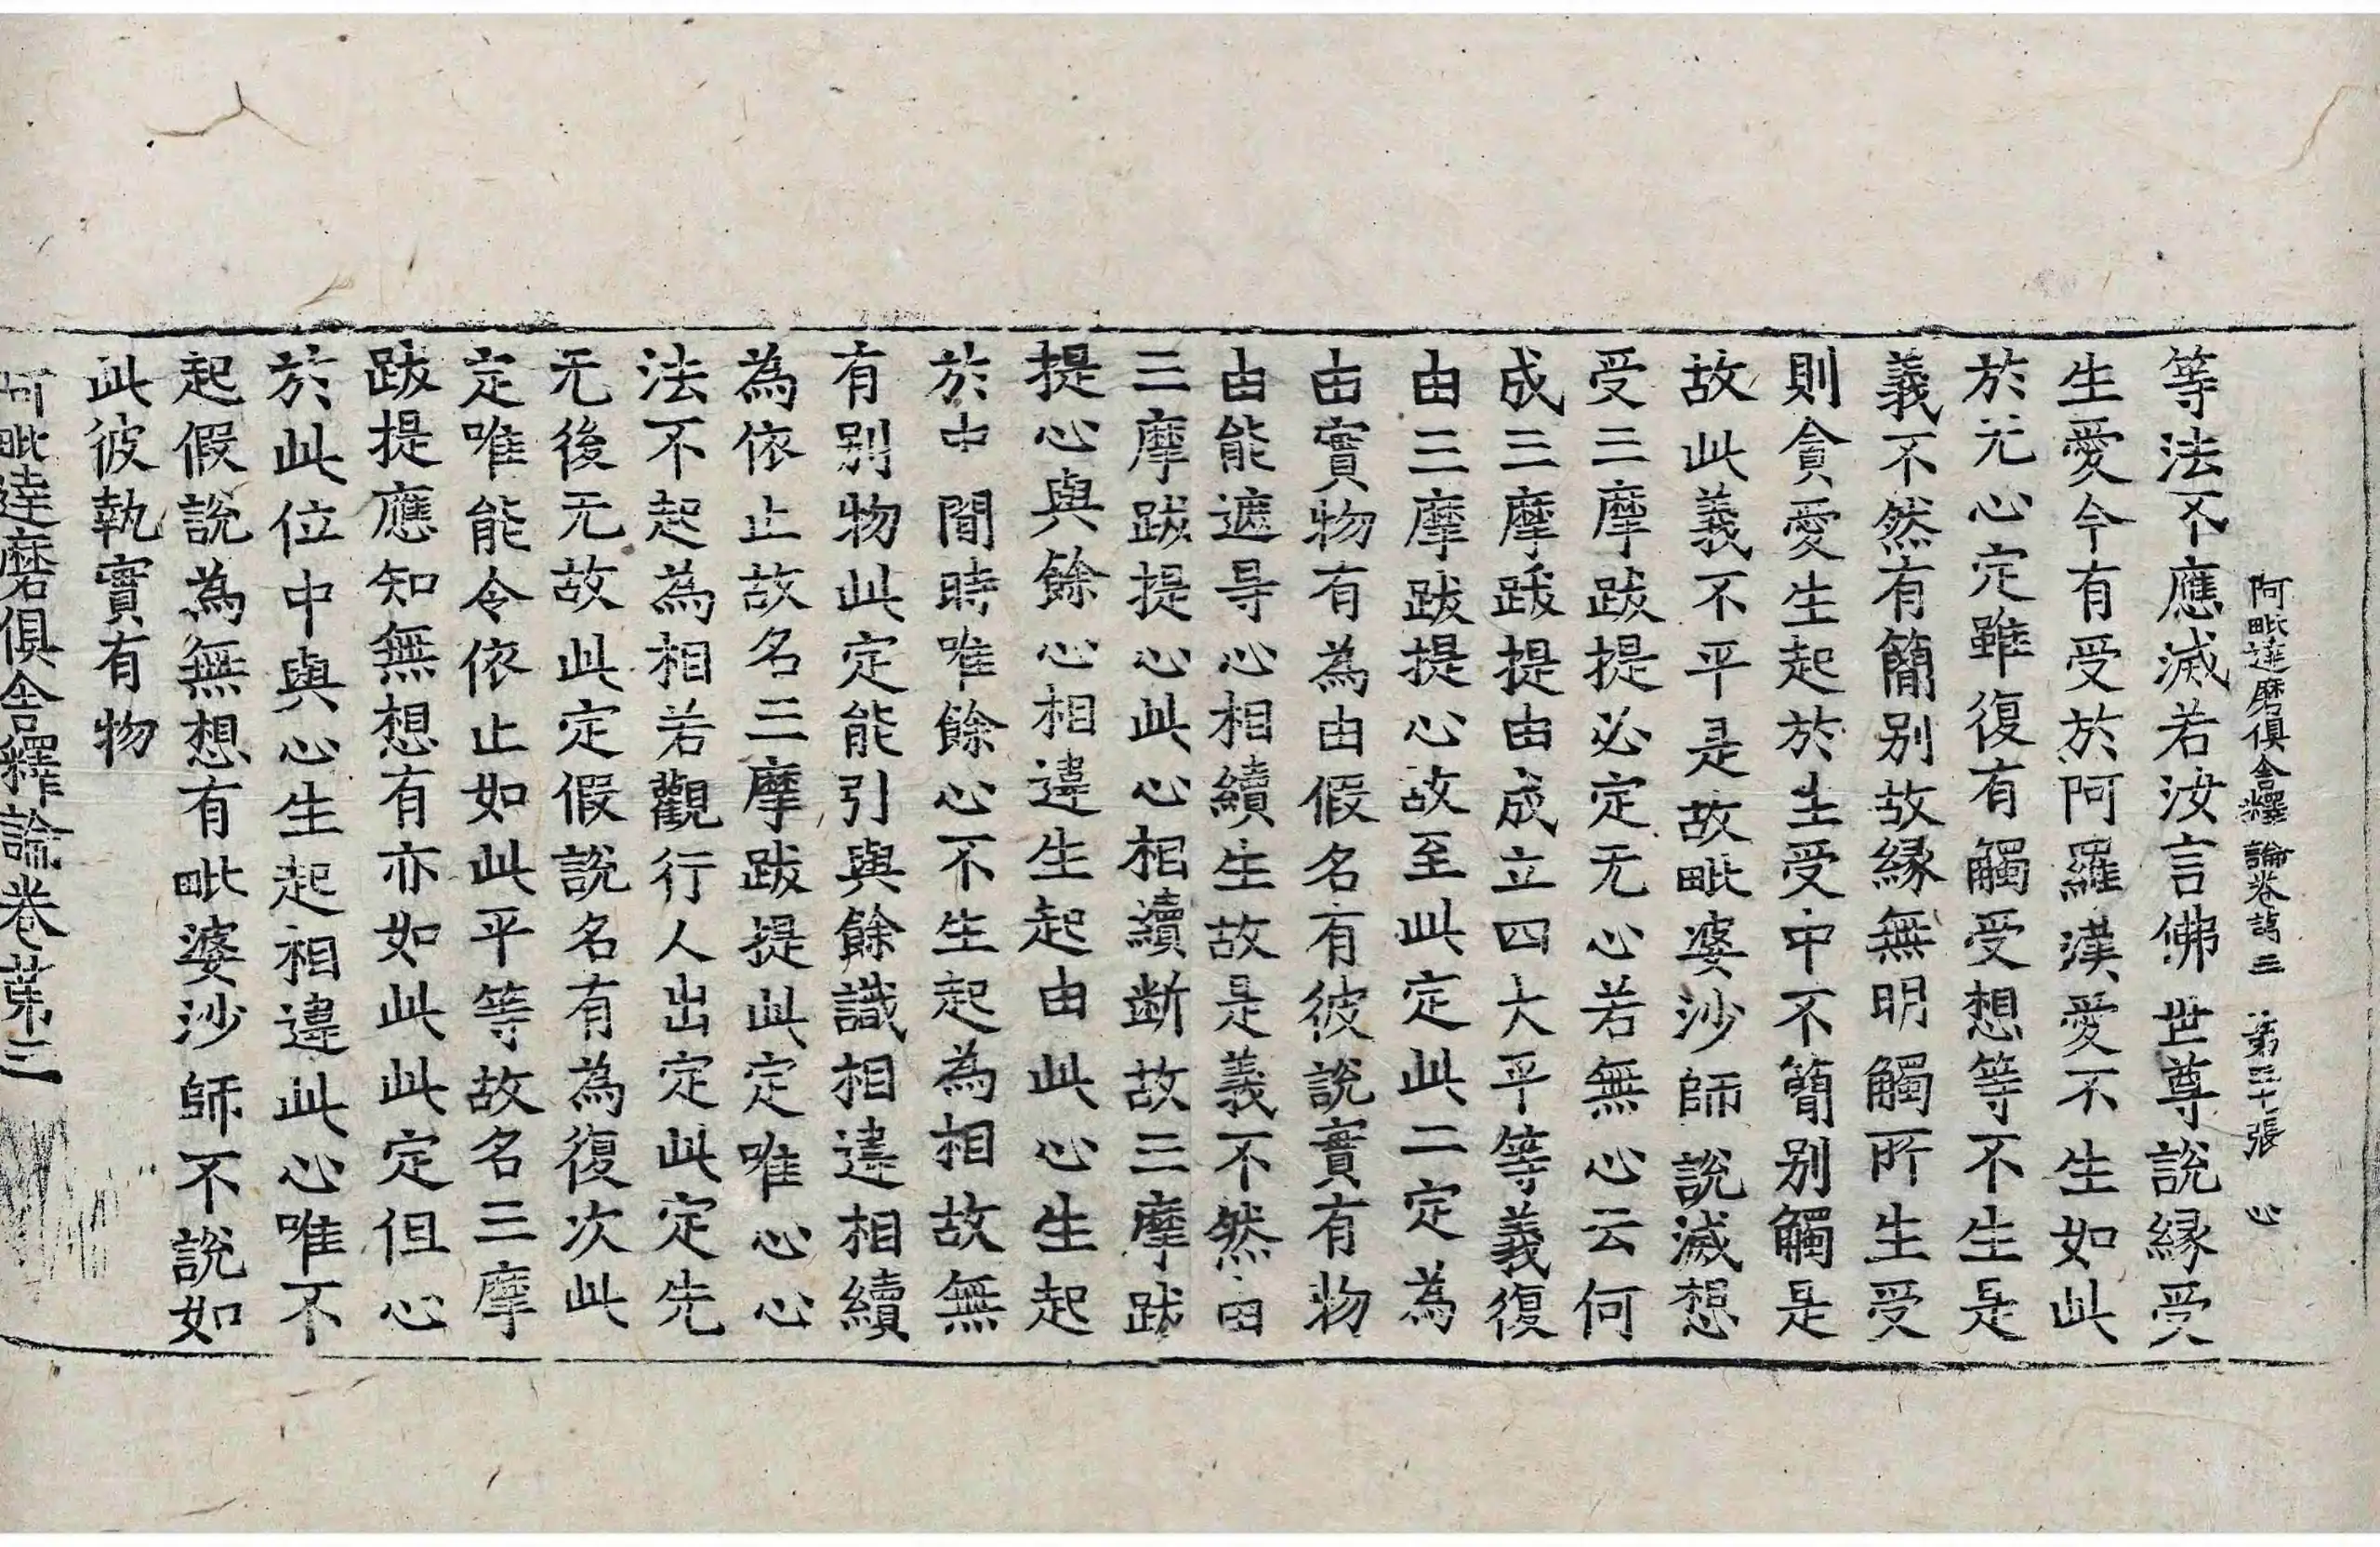 阿毗達磨俱舍釋論卷第三 第三十張 心
等法不應滅若汝言佛世尊說緣受
生愛今有受於阿羅漢愛不生如此
於无心定雖復有觸受想等不生是
義不然有簡別故緣無明觸所生受
則貪愛生起於生受中不簡別觸是
故此義不平是故毗婆沙師說滅想
受三摩跋提必定无心若無心云何
成三摩跋提由成立四大平等義復
由三摩跋提心故至此定此二定為
由實物有為由假名有彼說實有物
由能遮㝵心相續生故是義不然由
三摩跋提心此心相續斷故三摩跋
提心與餘心相違生起由此心生起
於中間時唯餘心不生起為相故無
有別物此定能引與餘識相違相續
為依止故名三摩跋提此定唯心心
法不起為相若觀行人出定此定先
无後无故此定假說名有為復次此
定唯能令依止如此平等故名三摩
跋提應知無想有亦如此此定但心
於此位中與心生起相違此心唯不
起假說為無想有毗婆沙師不說如
此彼執實有物
阿毗達磨俱舍釋論卷第三